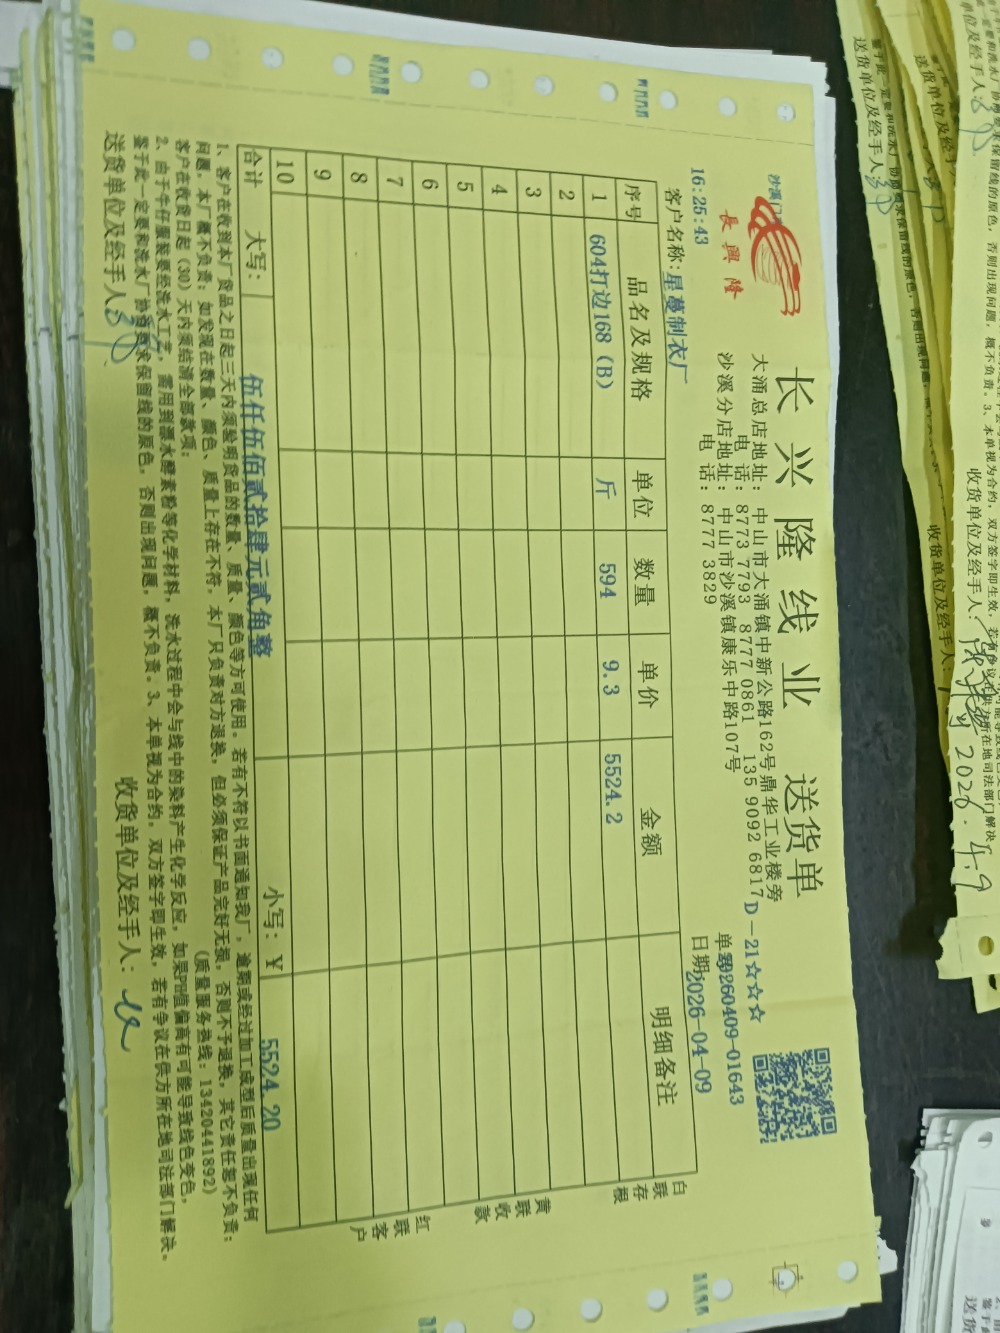 長興隆
长兴隆线业 送货单
大涌总店地址：中山市大涌镇中新公路162号鼎华工业楼旁
电 话：8773 7793 8777 0861 135 9092 6817
沙溪分店地址：中山市沙溪镇康乐中路107号
电 话：8777 3829
D-21☆☆☆
20260409-01643
16:25:43
日期：2026-04-09
客户名称：星蔓制衣厂
序号 品名及规格 单位 数量 单价 金额 明细备注
1 604打边168（B） 斤 594 9.3 5524.2
2
3
4
5
6
7
8
9
10
合计 大写：伍仟伍佰贰拾肆元贰角整 小写：￥ 5524.20
白联存根
黄联收款
红联客户
1、客户在收到本厂货品之日起三天内须验明货品的数量、质量、颜色等方可使用。若有不符以书面通知我厂，逾期或经过加工成型后质量出现任何
问题，本厂概不负责；如发现在数量、颜色、质量上存在不符，本厂只负责对方退换，但必须保证产品完好无损，否则不予退换，其它责任恕不负责；
客户在收货日起（30）天内须结清全部款项； （质量服务热线：13420441892）
2、由于牛仔服装要经洗水工艺，需用到漂水酵素粉等化学材料，洗水过程中会与线中的染料产生化学反应，如果PH值偏高有可能导致线色变色，
鉴于此一定要和洗水厂协商要求保留线的原色，否则出现问题，概不负责。3、本单视为合约，双方签字即生效，若有争议在供方所在地司法部门解决。
送货单位及经手人：
收货单位及经手人：
收货单位及经手人：
2026.4.9
送货单位及经手人：
收货单位及经手人：